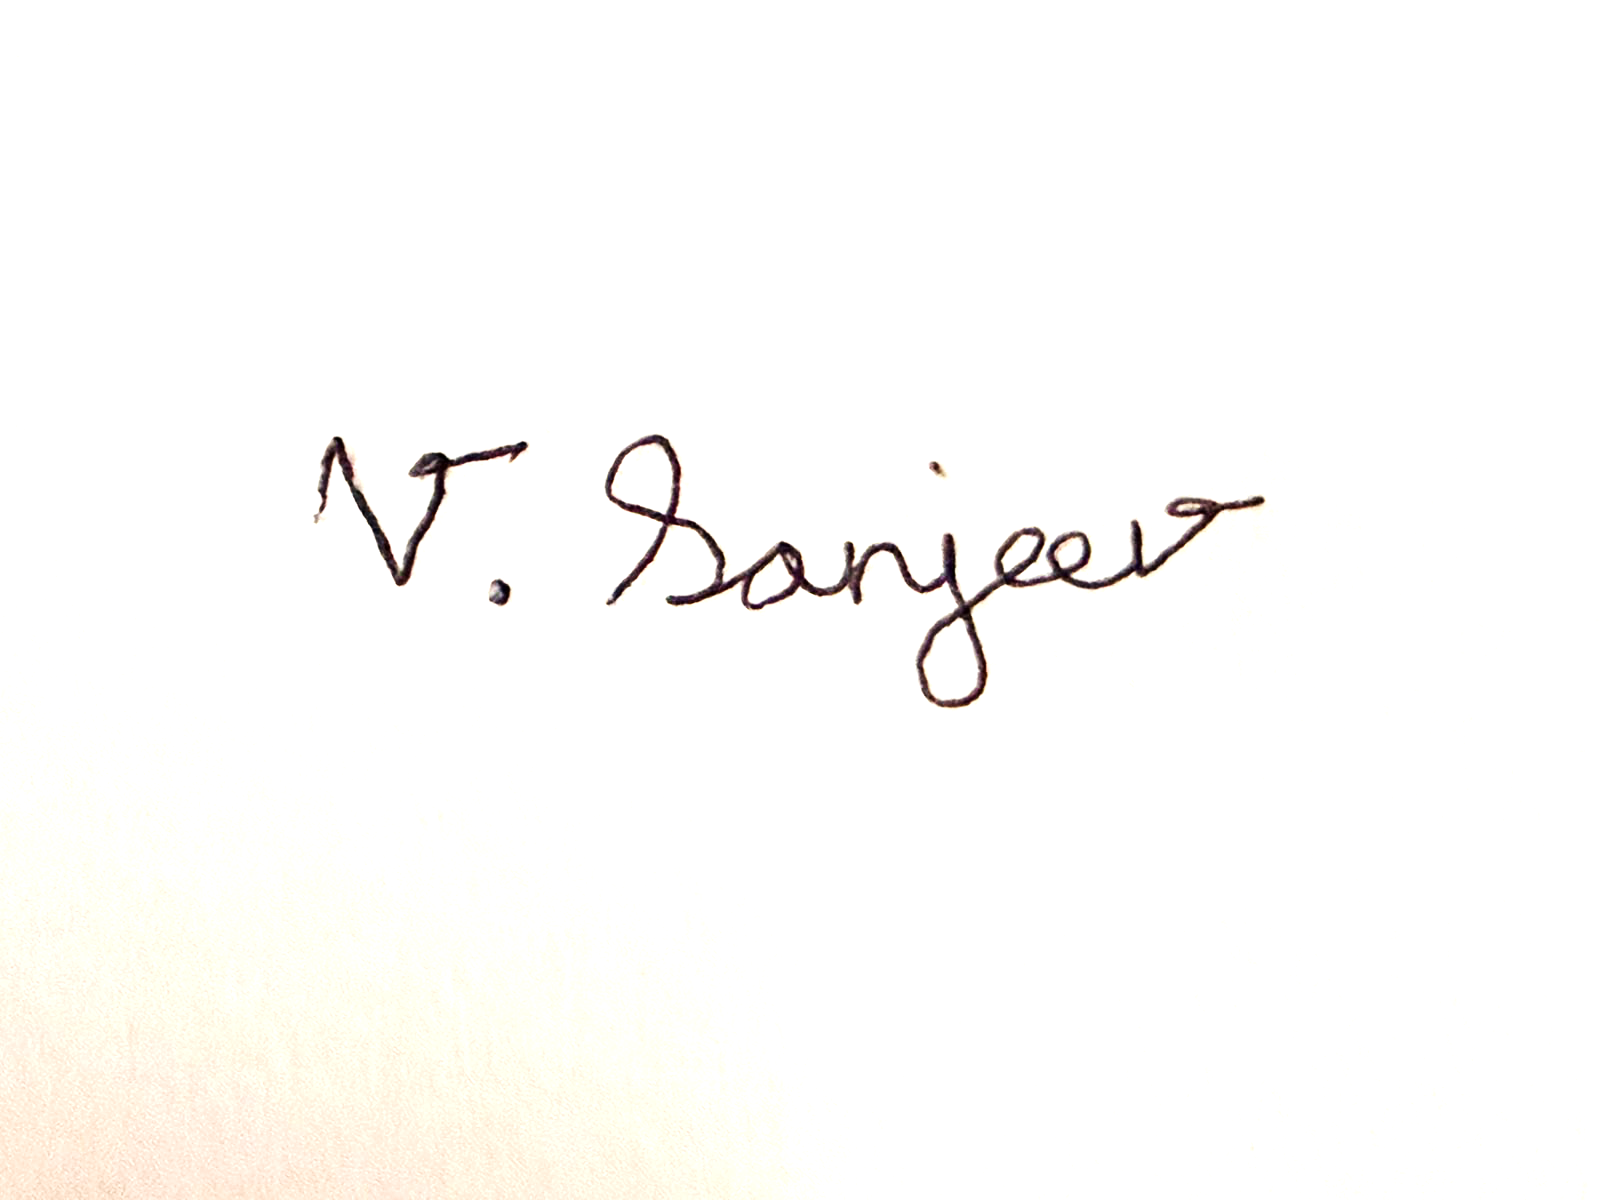 V. Sanjeev